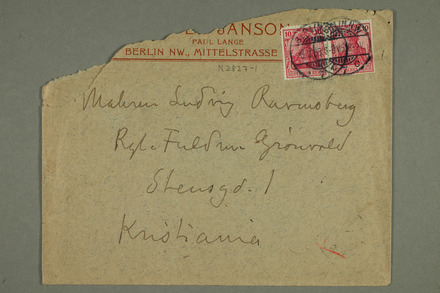 JANSON
PAUL LANGE
BERLIN NW., MITTELSTRASSE
10
N2827-1
Maleren Ludvig Ravensberg
Grönvold
Stensgd. 1
Kristiania